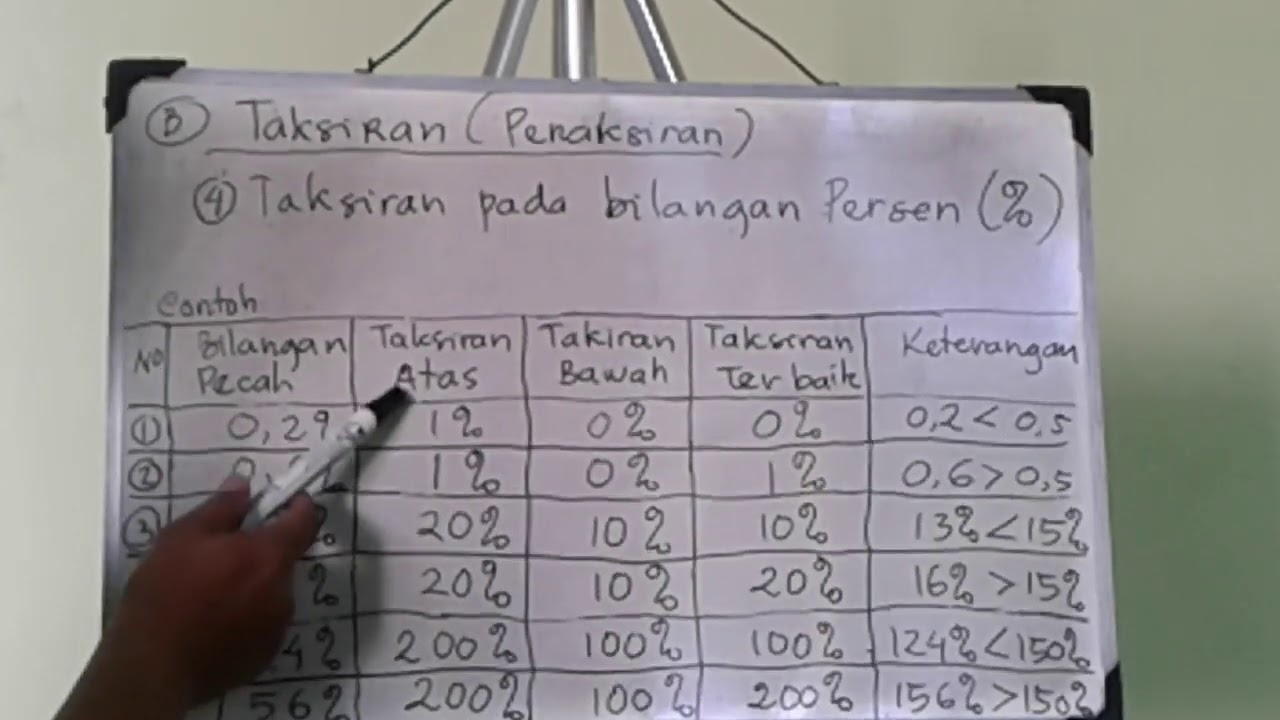 B Taksiran (Penaksiran)
4 Taksiran pada bilangan Persen (%)
Contoh
No Bilangan Pecah Taksiran Atas Takiran Bawah Taksiran Terbaik Keterangan
1 0,2% 1% 0% 0% 0,2 < 0,5
2 1% 0% 1% 0,6 > 0,5
3 % 20% 10% 10% 13% < 15%
% 20% 10% 20% 16% > 15%
24% 200% 100% 100% 124% < 150%
56% 200% 100% 200% 156% > 150%